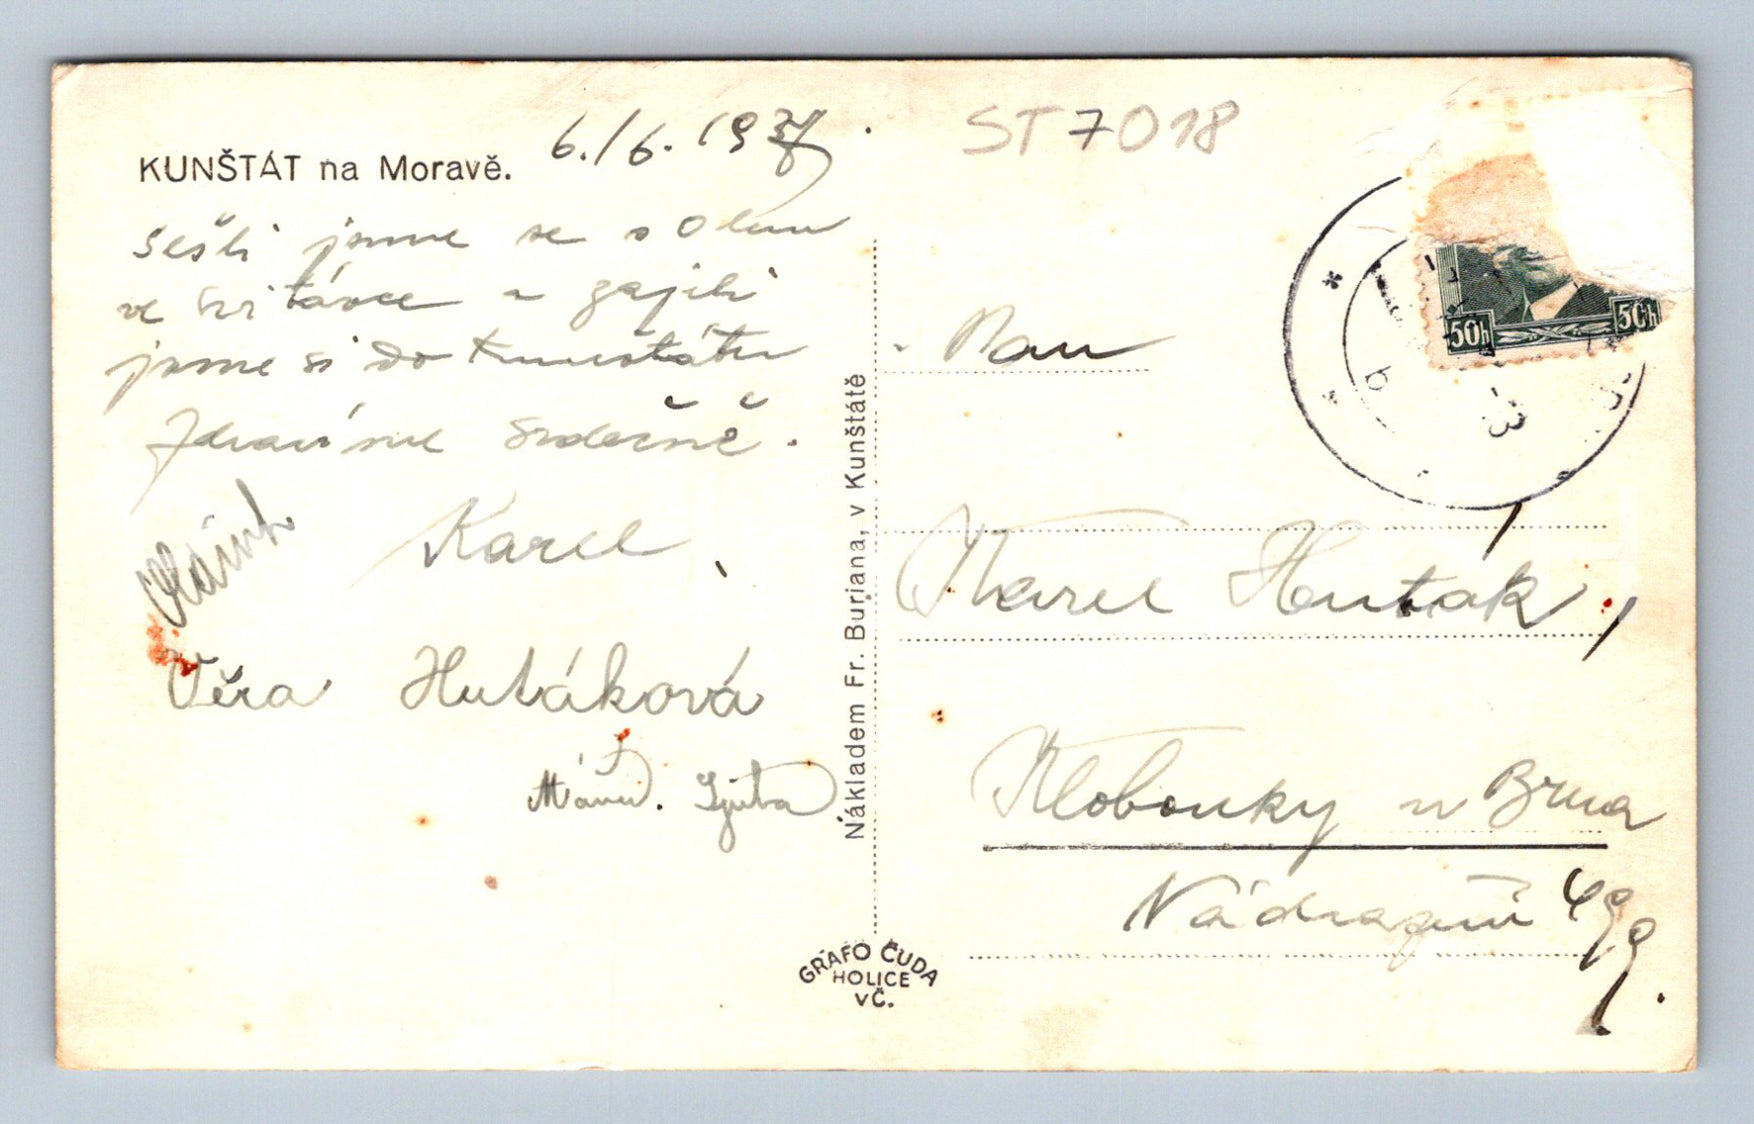 KUNŠTÁT na Moravě.
6./6. 1937.
ST7018
sešli jsme se s Olou
ve Svitávce a zajeli
jsme si do Kunštátu
Zdravíme srdečně.
Karel
Věra Hutáková
Nákladem Fr. Buriana, v Kunštátě
50h 50h
Pan
Karel Huták,
Klobouky u Brna
Nádražní
GRAFO ČUDA
HOLICE
VČ.